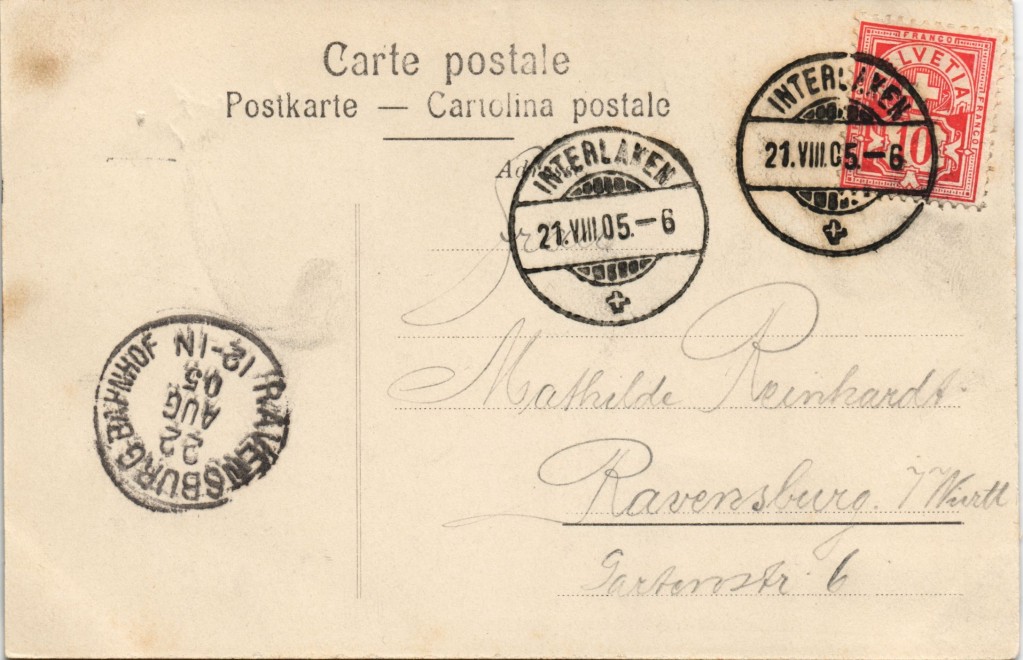 Carte postale
Postkarte — Cartolina postale
FRANCO
HELVETIA
FRANCO
10
INTERLAKEN
21.VIII.05.–6
INTERLAKEN
21.VIII.05.–6
Mathilde Reinhardt
Ravensburg. /Württ
Gartenstr. 6
RAVENSBURG BAHNHOF
22
AUG
05
12-1N